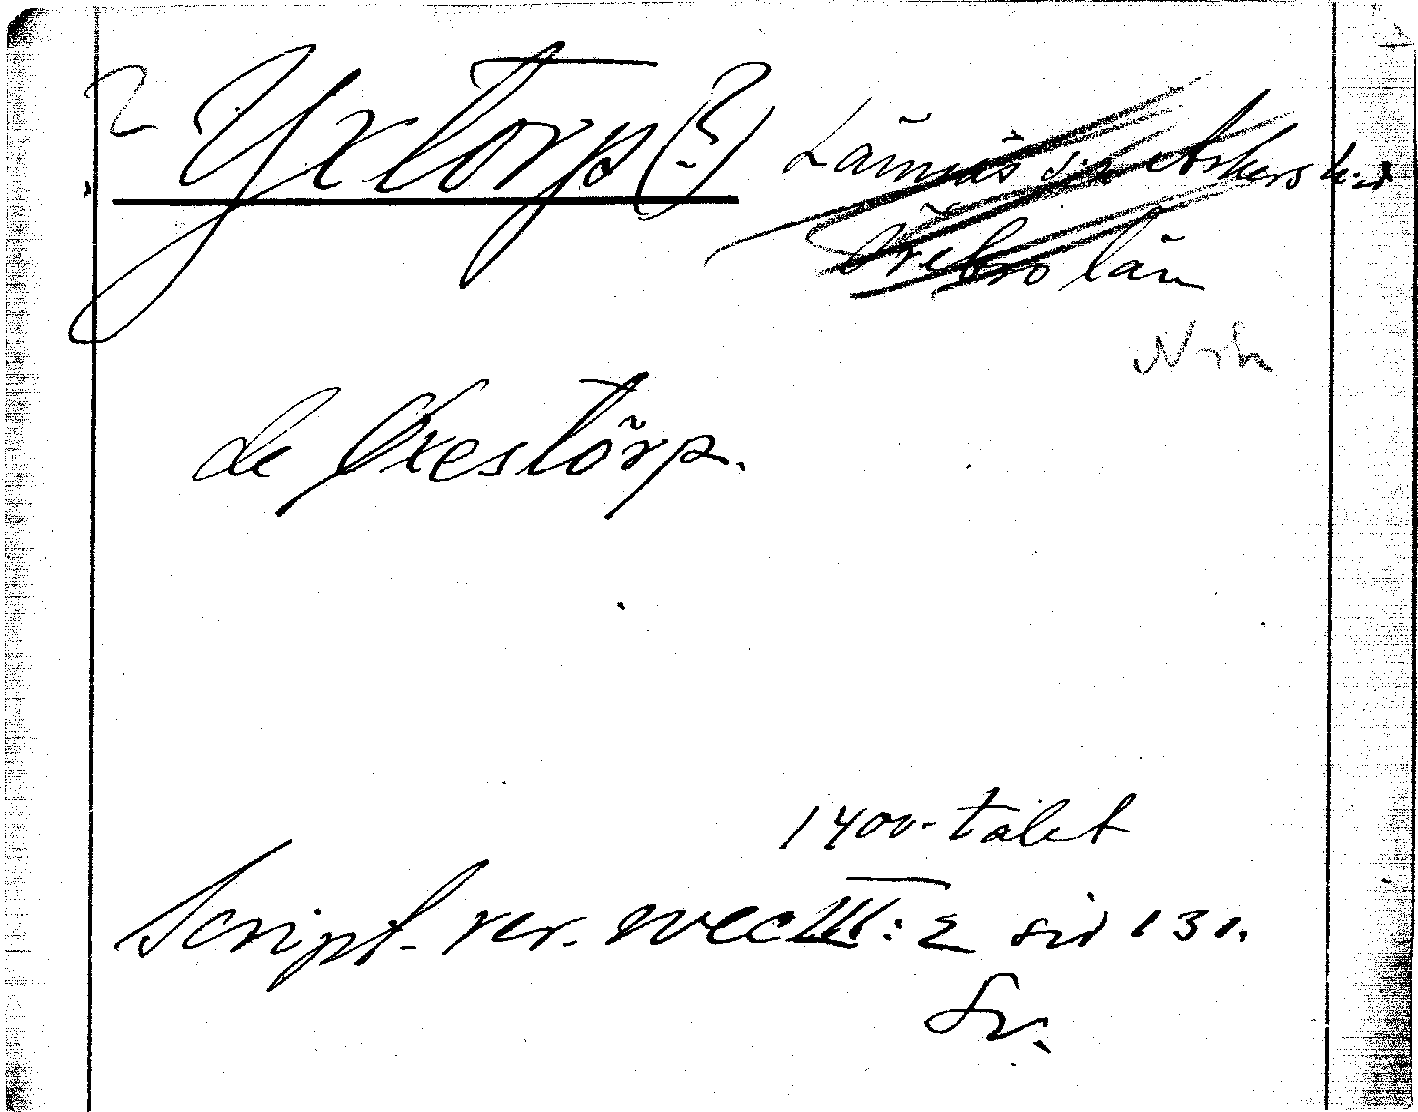 ? Yxtorp (?) Lännäs sn Askers hd
Örebro län
de Oxestörp.
1400-talet
Script. rer. svec III: 2 sid 131.
Lr.